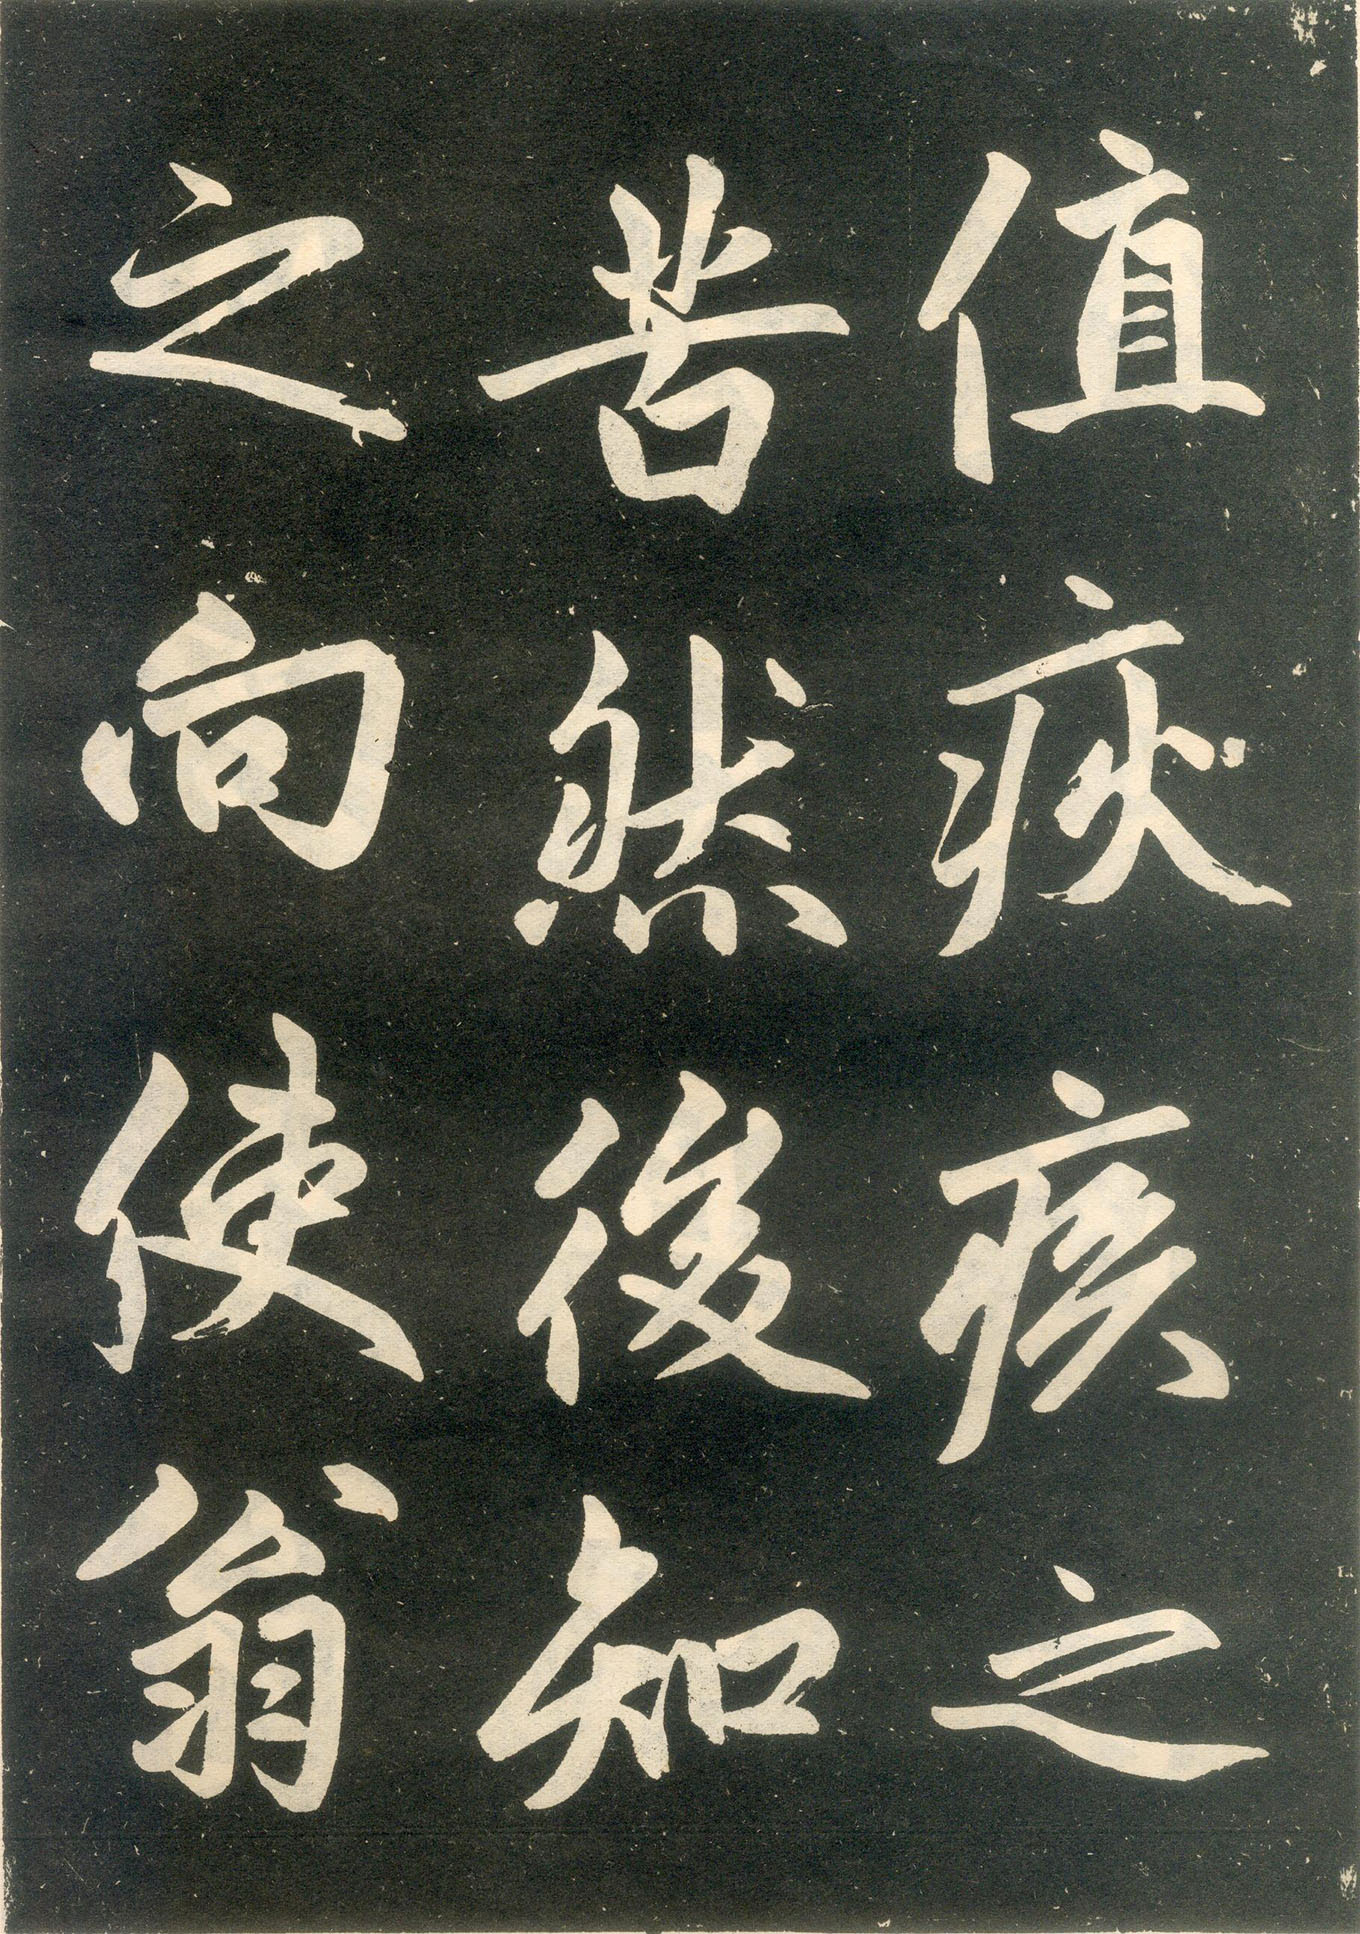 值疢疾之
苦然後知
之向使翁